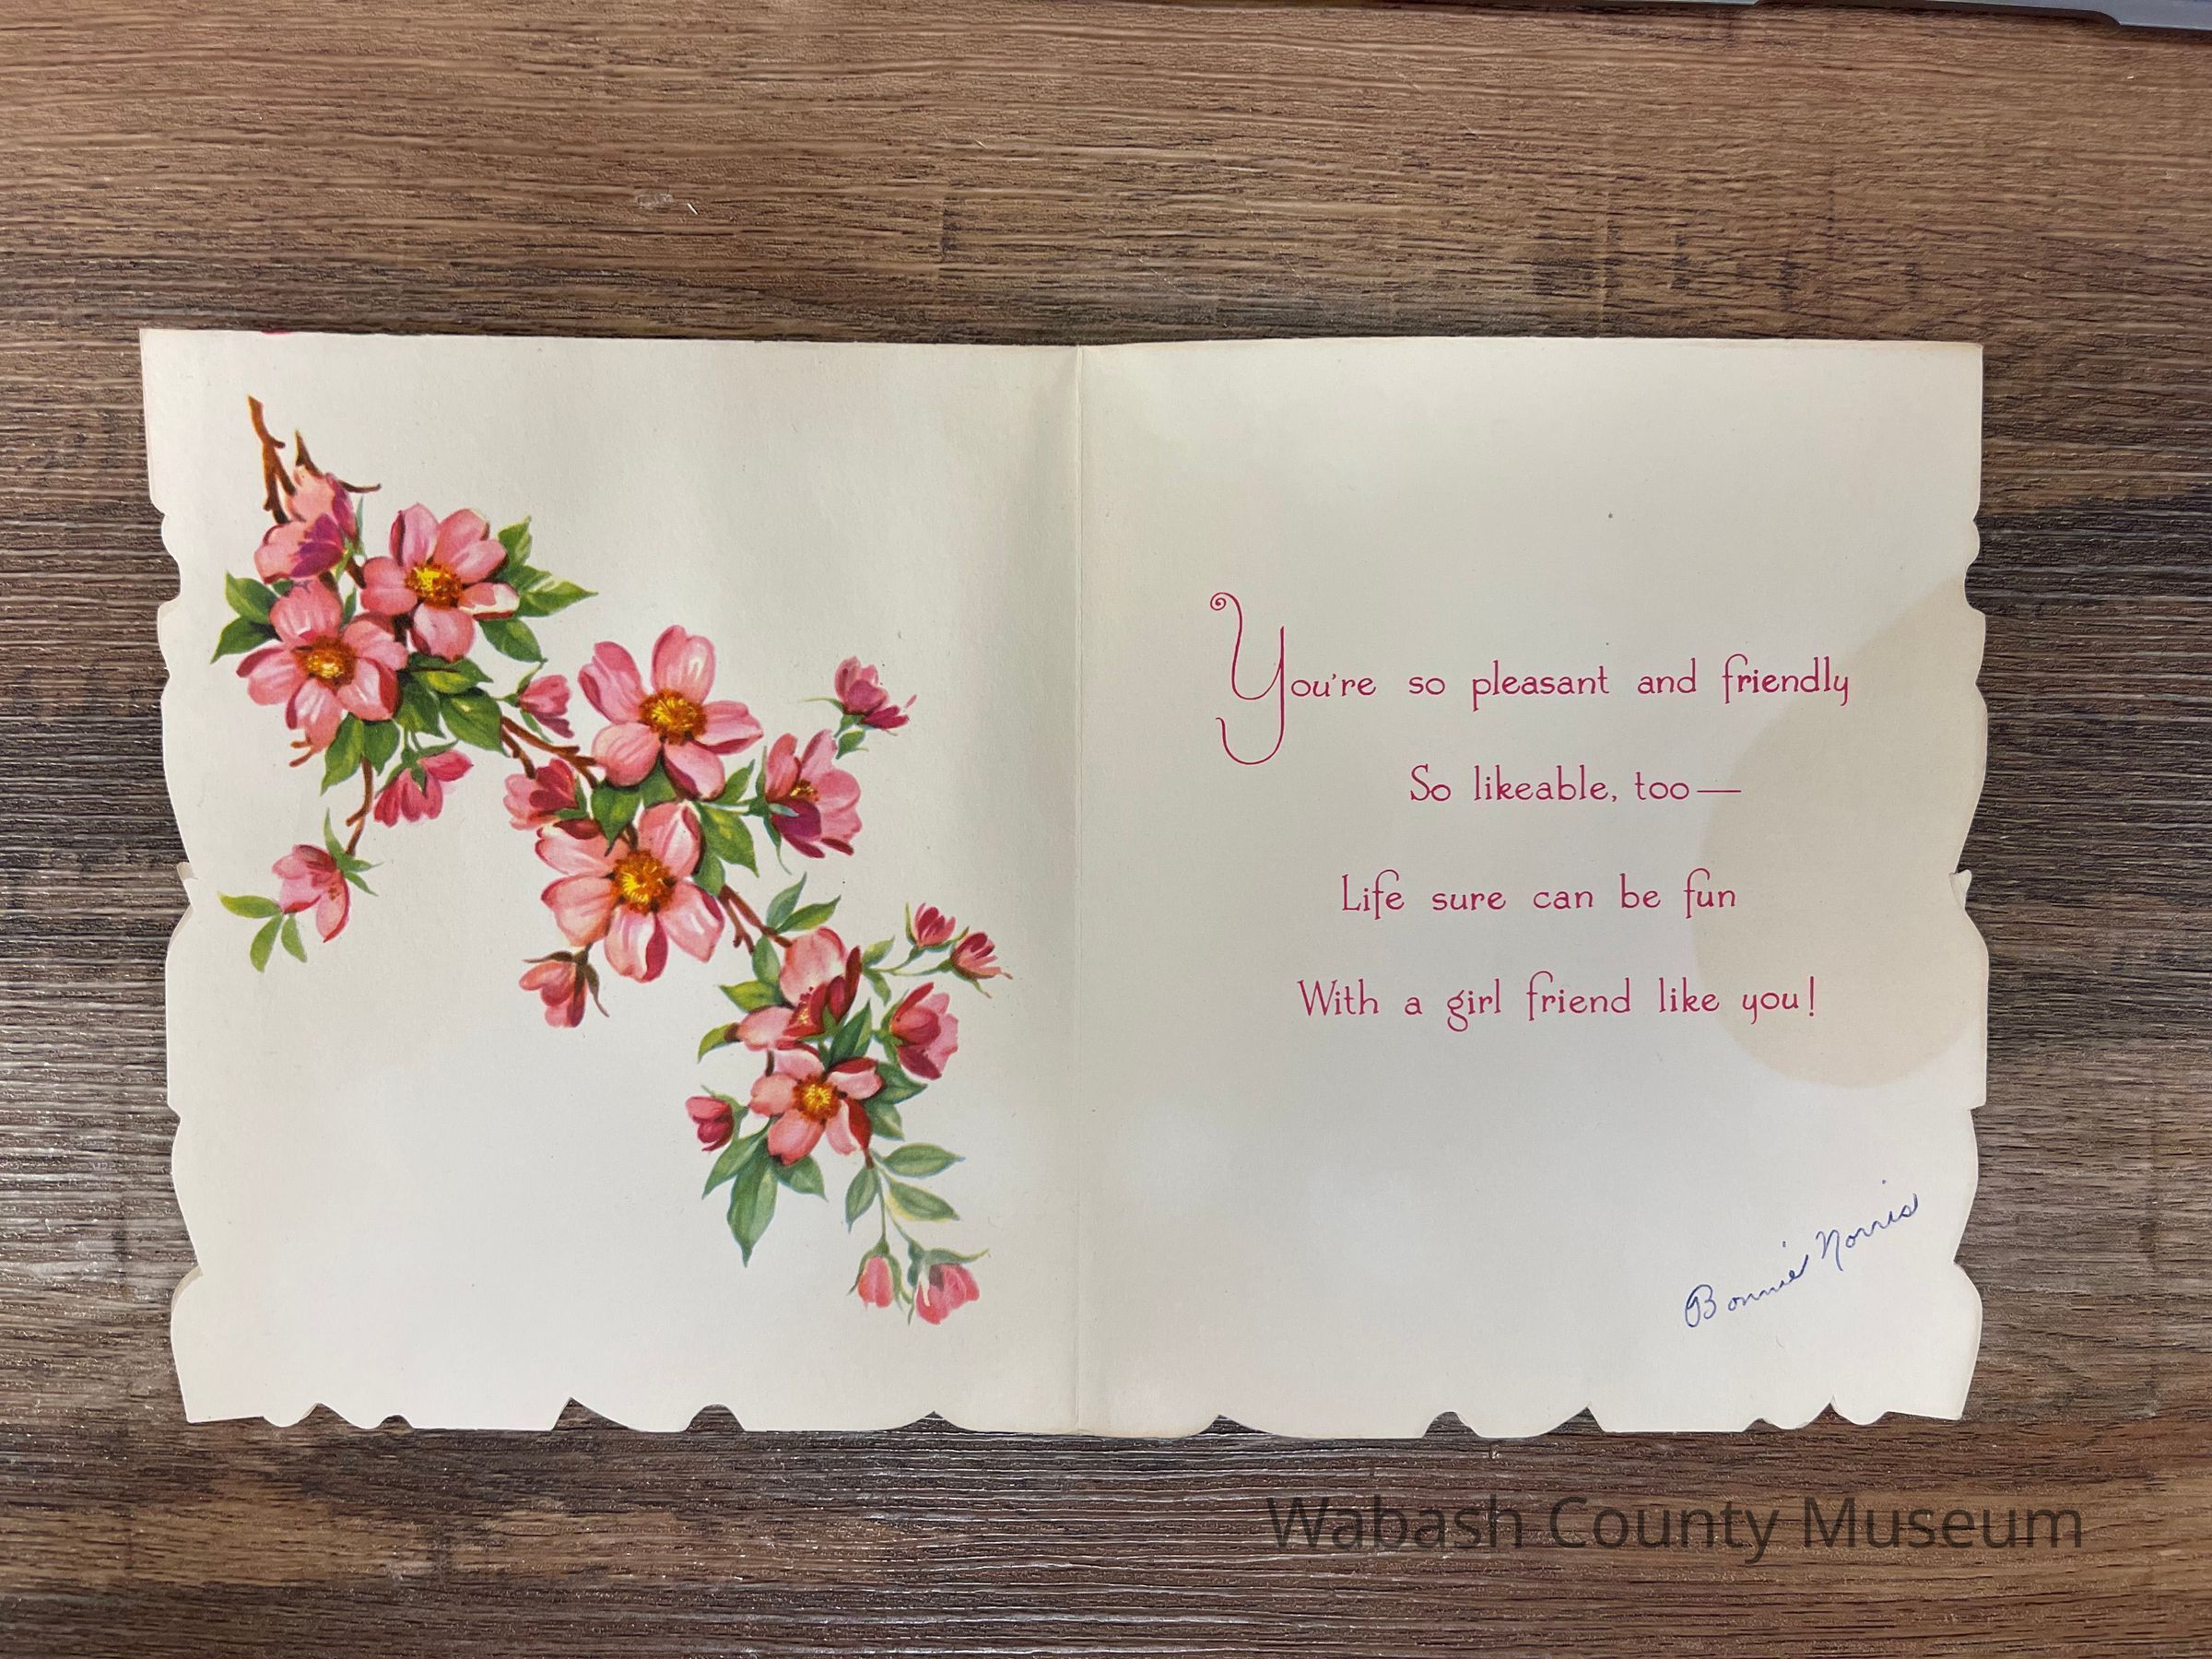 You're so pleasant and friendly
So likeable, too—
Life sure can be fun
With a girl friend like you!
Bonnie Norris
Wabash County Museum